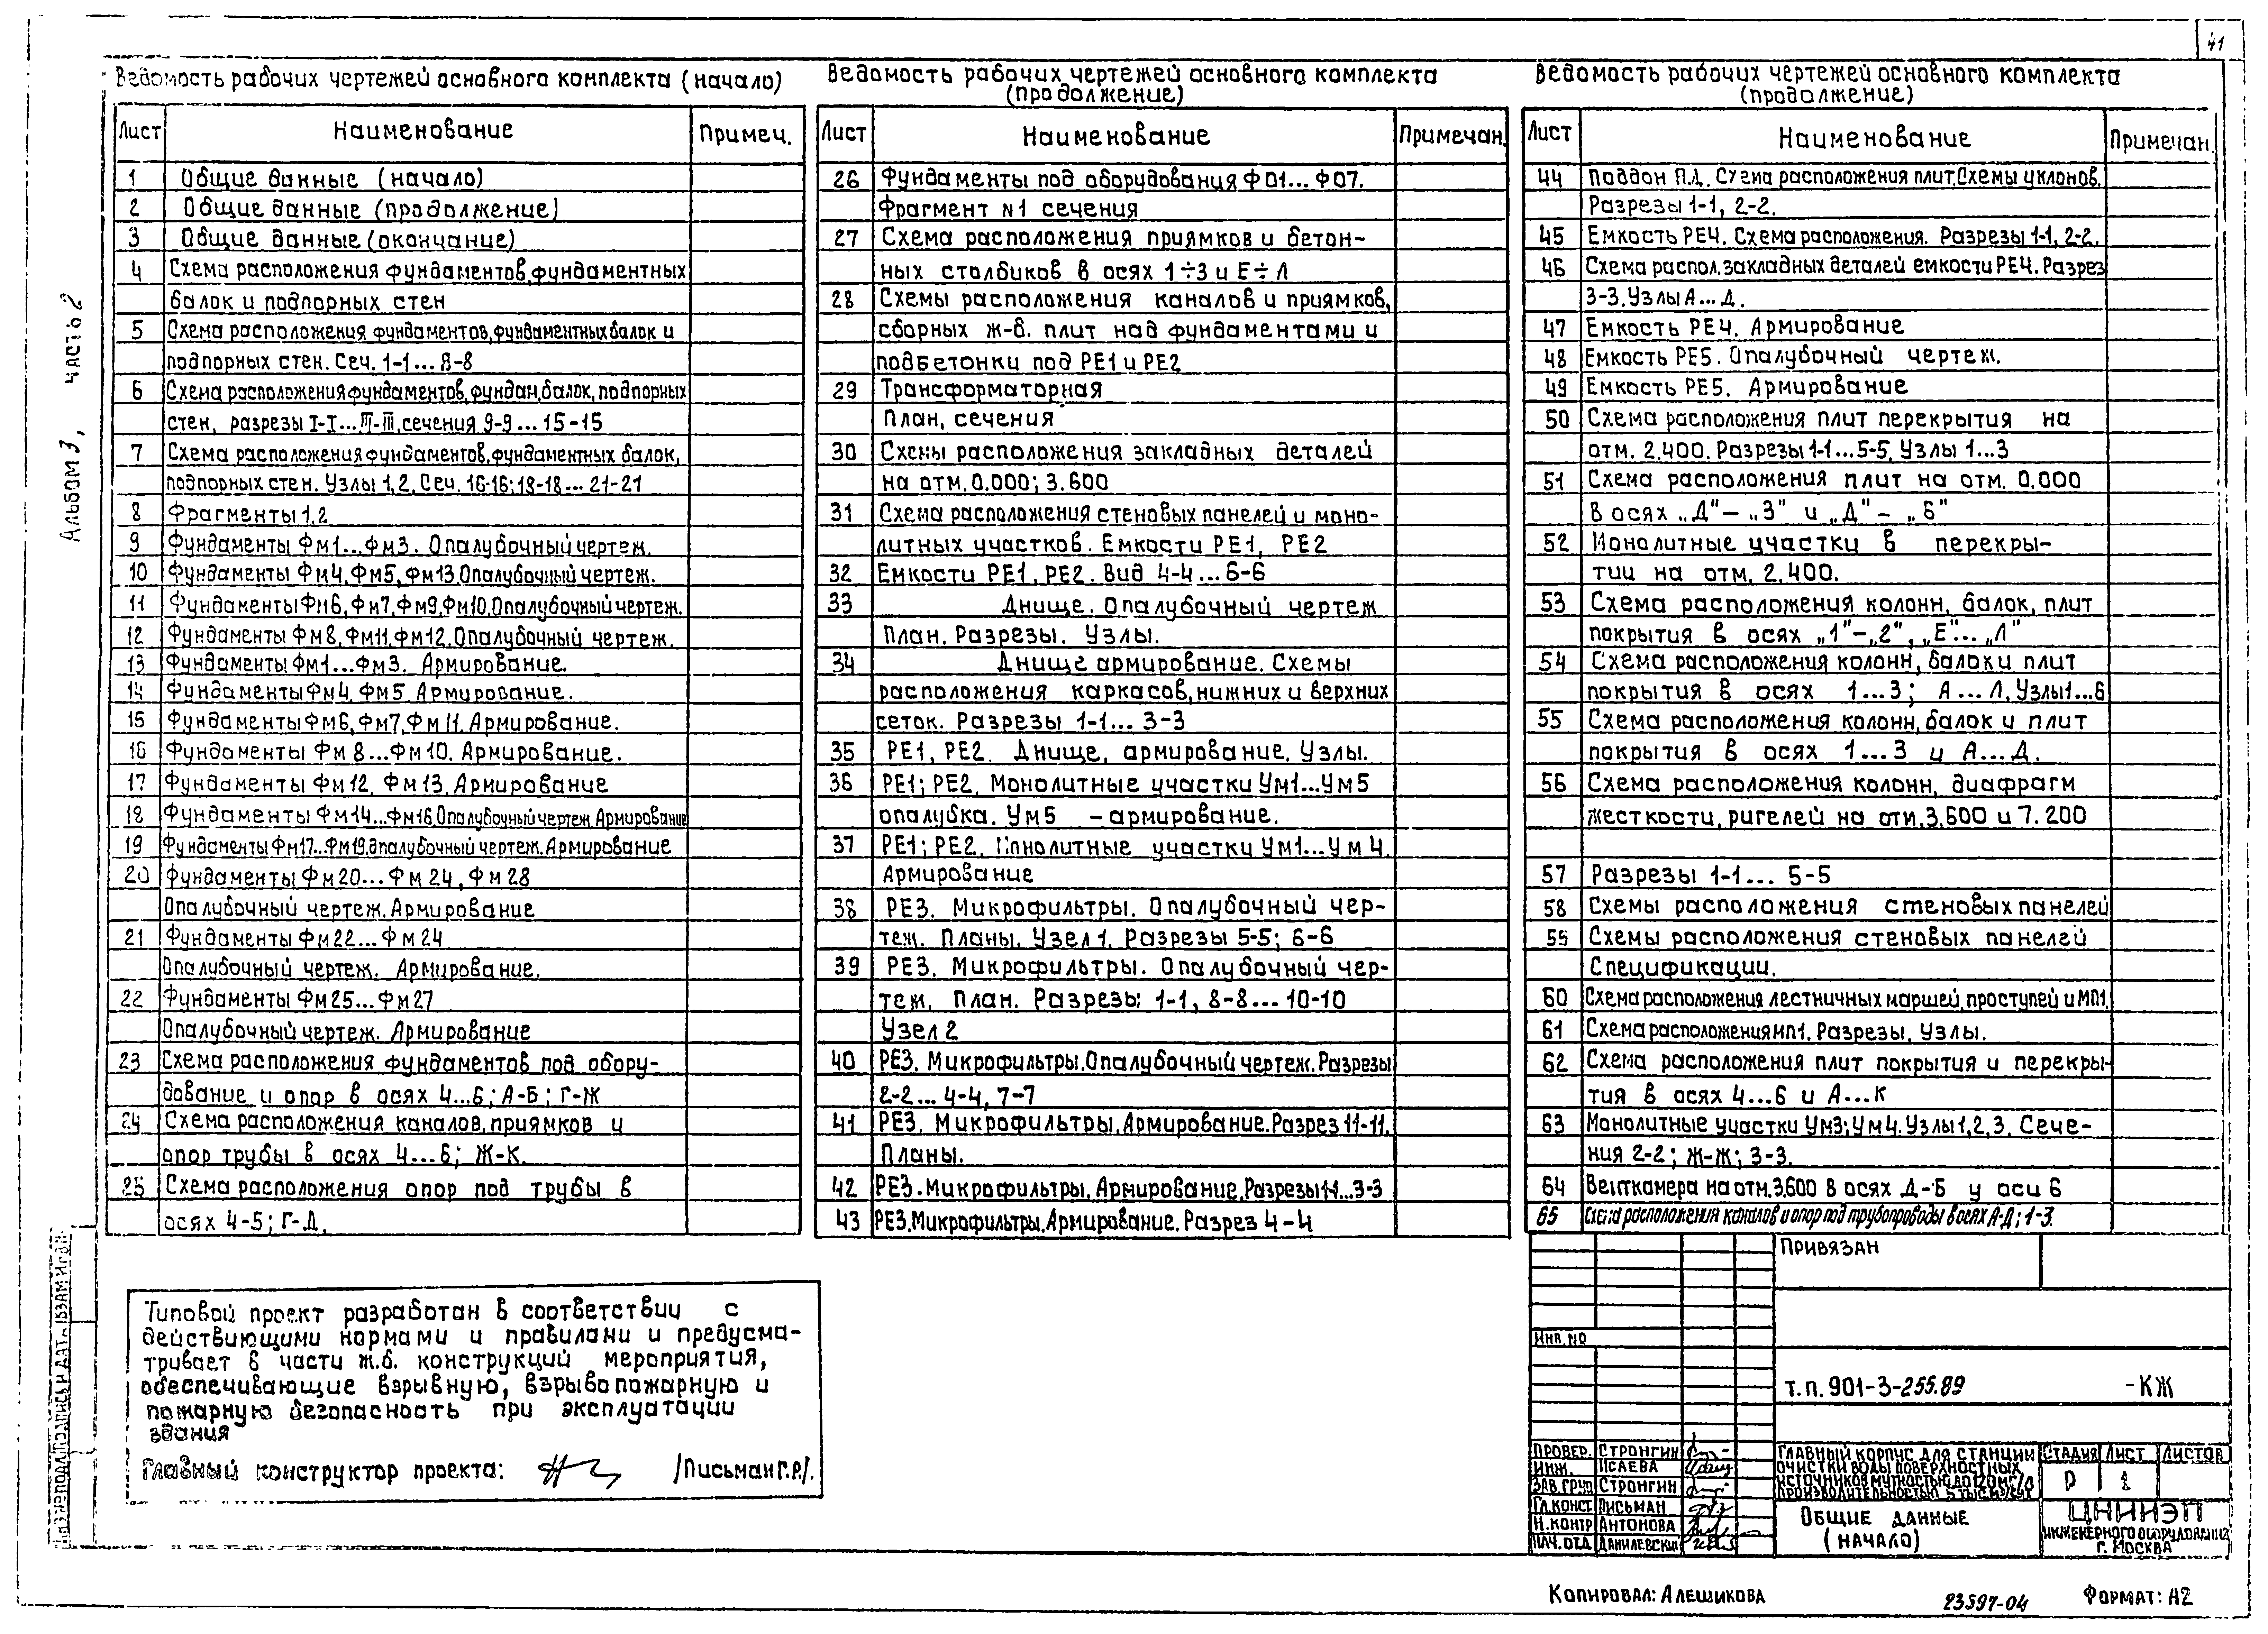 41
Альбом 3, часть 2
Ведомость рабочих чертежей основного комплекта (начало)
Лист Наименование Примеч.
1 Общие данные (начало)
2 Общие данные (продолжение)
3 Общие данные (окончание)
4 Схема расположения фундаментов, фундаментных
балок и подпорных стен
5 Схема расположения фундаментов, фундаментных балок и
подпорных стен. Сеч. 1-1...8-8
6 Схема расположения фундаментов, фундам. балок, подпорных
стен, разрезы I-I...III-III, сечения 9-9...15-15
7 Схема расположения фундаментов, фундаментных балок,
подпорных стен. Узлы 1,2. Сеч. 16-16; 18-18...21-21
8 Фрагменты 1,2
9 Фундаменты Фм1...Фм3. Опалубочный чертеж.
10 Фундаменты Фм4, Фм5, Фм13. Опалубочный чертеж.
11 Фундаменты Фм6, Фм7, Фм9, Фм10. Опалубочный чертеж.
12 Фундаменты Фм8, Фм11, Фм12. Опалубочный чертеж.
13 Фундаменты Фм1...Фм3. Армирование.
14 Фундаменты Фм4, Фм5. Армирование.
15 Фундаменты Фм6, Фм7, Фм11. Армирование.
16 Фундаменты Фм8...Фм10. Армирование.
17 Фундаменты Фм12, Фм13. Армирование
18 Фундаменты Фм14...Фм16. Опалубочный чертеж. Армирование
19 Фундаменты Фм17...Фм19. Опалубочный чертеж. Армирование
20 Фундаменты Фм20...Фм24, Фм28
Опалубочный чертеж. Армирование
21 Фундаменты Фм22...Фм24
Опалубочный чертеж. Армирование.
22 Фундаменты Фм25...Фм27
Опалубочный чертеж. Армирование
23 Схема расположения фундаментов под обору-
дование и опор в осях 4...6; А-Б; Г-Ж
24 Схема расположения каналов, приямков и
опор трубы в осях 4...6; Ж-К.
25 Схема расположения опор под трубы в
осях 4-5; Г-Д.
Ведомость рабочих чертежей основного комплекта
(продолжение)
Лист Наименование Примечан.
26 Фундаменты под оборудования Ф01...Ф07.
Фрагмент №1 сечения
27 Схема расположения приямков и бетон-
ных столбиков в осях 1÷3 и Е÷Л
28 Схемы расположения каналов и приямков,
сборных ж-б. плит над фундаментами и
подбетонки под РЕ1 и РЕ2
29 Трансформаторная
План, сечения
30 Схемы расположения закладных деталей
на отм. 0.000; 3.600
31 Схема расположения стеновых панелей и моно-
литных участков. Емкости РЕ1, РЕ2
32 Емкости РЕ1, РЕ2. Вид 4-4...6-6
33 Днище. Опалубочный чертеж
План. Разрезы. Узлы.
34 Днище армирование. Схемы
расположения каркасов, нижних и верхних
сеток. Разрезы 1-1...3-3
35 РЕ1, РЕ2. Днище, армирование. Узлы.
36 РЕ1; РЕ2. Монолитные участки Ум1...Ум5
опалубка. Ум5 – армирование.
37 РЕ1; РЕ2. Монолитные участки Ум1...Ум4.
Армирование
38 РЕ3. Микрофильтры. Опалубочный чер-
теж. Планы. Узел 1. Разрезы 5-5; 6-6
39 РЕ3. Микрофильтры. Опалубочный чер-
теж. План. Разрезы 1-1, 8-8...10-10
Узел 2
40 РЕ3. Микрофильтры. Опалубочный чертеж. Разрезы
2-2...4-4, 7-7
41 РЕ3. Микрофильтры. Армирование. Разрез 11-11.
Планы.
42 РЕ3. Микрофильтры. Армирование. Разрезы 1-1...3-3
43 РЕ3. Микрофильтры. Армирование. Разрез 4-4
Ведомость рабочих чертежей основного комплекта
(продолжение)
Лист Наименование Примечан.
44 Поддон П.Д. Схема расположения плит. Схемы уклонов.
Разрезы 1-1, 2-2.
45 Емкость РЕ4. Схема расположения. Разрезы 1-1, 2-2.
46 Схема распол. закладных деталей емкости РЕ4. Разрез
3-3. Узлы А...Д.
47 Емкость РЕ4. Армирование
48 Емкость РЕ5. Опалубочный чертеж.
49 Емкость РЕ5. Армирование
50 Схема расположения плит перекрытия на
отм. 2.400. Разрезы 1-1...5-5, Узлы 1...3
51 Схема расположения плит на отм. 0.000
в осях „Д"–„3" и „Д"–„6"
52 Монолитные участки в перекры-
тии на отм. 2.400.
53 Схема расположения колонн, балок, плит
покрытия в осях „1"–„2", „Е"...„Л"
54 Схема расположения колонн, балок и плит
покрытия в осях 1...3; А...Л. Узлы 1...6
55 Схема расположения колонн, балок и плит
покрытия в осях 1...3 и А...Д.
56 Схема расположения колонн, диафрагм
жесткости, ригелей на отм. 3.600 и 7.200
57 Разрезы 1-1...5-5
58 Схемы расположения стеновых панелей
59 Схемы расположения стеновых панелей
Спецификации.
60 Схема расположения лестничных маршей, проступей и МП1.
61 Схема расположения МП1. Разрезы. Узлы.
62 Схема расположения плит покрытия и перекры-
тия в осях 4...6 и А...К
63 Монолитные участки Ум3; Ум4. Узлы 1, 2, 3. Сече-
ния 2-2; Ж-Ж; 3-3.
64 Венткамера на отм. 3.600 в осях Д-Б у оси 6
65 Схема расположения каналов и опор под трубопроводы в осях А-Д; 1-3.
Типовой проект разработан в соответствии с
действующими нормами и правилами и предусма-
тривает в части ж.б. конструкций мероприятия,
обеспечивающие взрывную, взрывопожарную и
пожарную безопасность при эксплуатации
здания
Главный конструктор проекта: /Письман Г.Р./.
Инв.№подл. Подпись и дата Взам.инв.№
Привязан
Инв.№
т.п. 901-3-255.89 -КЖ
Провер. Стронгин
Инж. Исаева
Зав.груп Стронгин
Гл.конст Письман
Н.контр Антонова
Нач.отд Данилевский
Главный корпус для станции
очистки воды поверхностных
источников мутностью до 120 мг/л
производительностью 5 тыс.м3/сут
Стадия Лист Листов
Р 1
Общие данные
(начало)
ЦНИИЭП
инженерного оборудования
г. Москва
Копировал: Алешикова
23597-04
Формат: А2